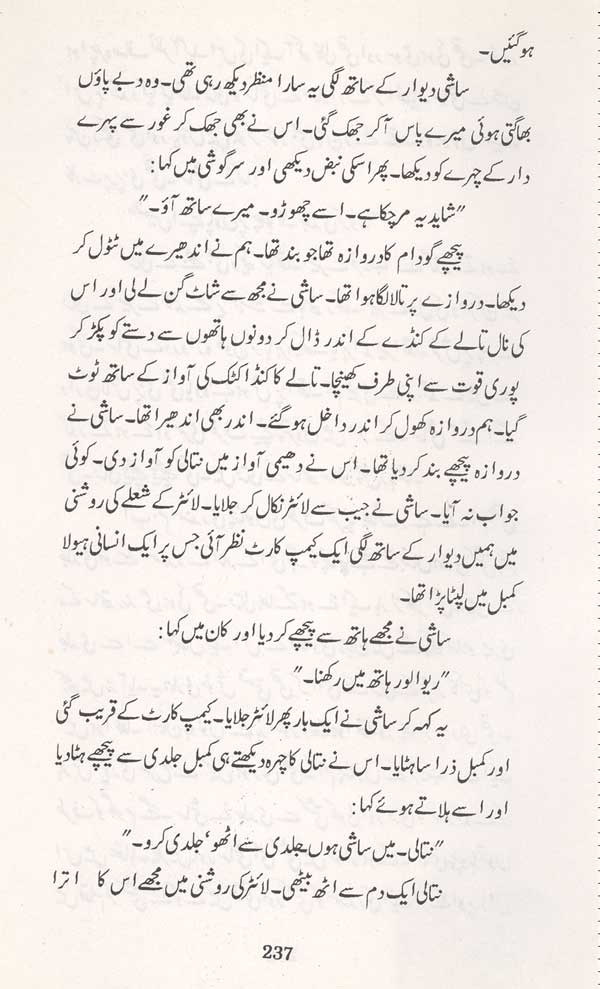 ہو گئیں۔
ساشی دیوار کے ساتھ لگی یہ سارا منظر دیکھ رہی تھی۔ وہ دبے پاؤں
بھاگتی ہوئی میرے پاس آ کر جھک گئی۔ اس نے بھی جھک کر غور سے پہرے
دار کے چہرے کو دیکھا۔ پھر اسکی نبض دیکھی اور سرگوشی میں کہا:
"شاید یہ مر چکا ہے۔ اسے چھوڑو۔ میرے ساتھ آؤ۔"
پیچھے گودام کا دروازہ تھا جو بند تھا۔ ہم نے اندھیرے میں ٹٹول کر
دیکھا۔ دروازے پر تالا لگا ہوا تھا۔ ساشی نے مجھ سے شاٹ گن لے لی اور اس
کی نال تالے کے کنڈے کے اندر ڈال کر دونوں ہاتھوں سے دستے کو پکڑ کر
پوری قوت سے اپنی طرف کھینچا۔ تالے کا کنڈا کٹک کی آواز کے ساتھ ٹوٹ
گیا۔ ہم دروازہ کھول کر اندر داخل ہو گئے۔ اندر بھی اندھیرا تھا۔ ساشی نے
دروازہ پیچھے بند کر دیا تھا۔ اس نے دھیمی آواز میں نتالی کو آواز دی۔ کوئی
جواب نہ آیا۔ ساشی نے جیب سے لائٹر نکال کر جلایا۔ لائٹر کے شعلے کی روشنی
میں ہمیں دیوار کے ساتھ لگی ایک کیمپ کارٹ نظر آئی جس پر ایک انسانی ہیولا
کمبل میں لپٹا پڑا تھا۔
ساشی نے مجھے ہاتھ سے پیچھے کر دیا اور کان میں کہا:
"ریوالور ہاتھ میں رکھنا۔"
یہ کہہ کر ساشی نے ایک بار پھر لائٹر جلایا۔ کیمپ کارٹ کے قریب گئی
اور کمبل ذرا سا ہٹایا۔ اس نے نتالی کا چہرہ دیکھتے ہی کمبل جلدی سے پیچھے ہٹا دیا
اور اسے ہلاتے ہوئے کہا:
"نتالی۔ میں ساشی ہوں۔ جلدی سے اٹھو، جلدی کرو۔"
نتالی ایک دم سے اٹھ بیٹھی۔ لائٹر کی روشنی میں مجھے اس کا اترا
237